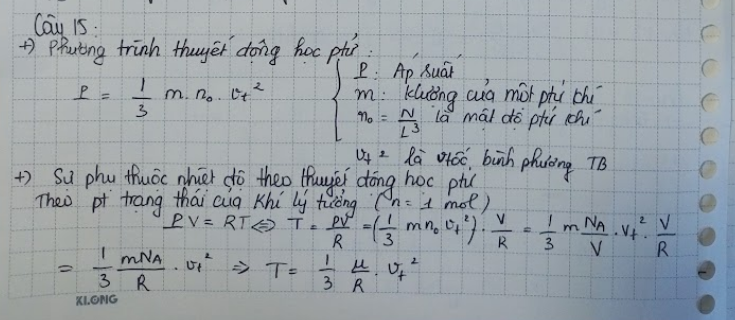 Câu 15:
+) Phương trình thuyết động học ptử:
P = 1/3 m. n₀. v_t²
P: Áp suất
m: klượng của một ptử khí
n₀ = N/L³ là mật độ ptử khí
v_t² là vtốc bình phương TB
+) Sự phụ thuộc nhiệt độ theo thuyết động học ptử
Theo pt trạng thái của khí lý tưởng (n = 1 mol)
PV = RT ⇔ T = PV/R = (1/3 m n₀ v_t²). V/R = 1/3 m N_A/V . v_t² . V/R
= 1/3 mN_A/R . v_t² ⇒ T = 1/3 μ/R . v_t²
KLONG